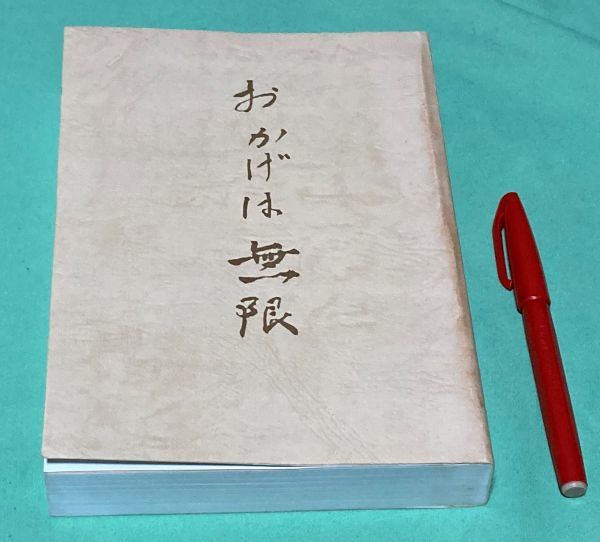 おかげは無限